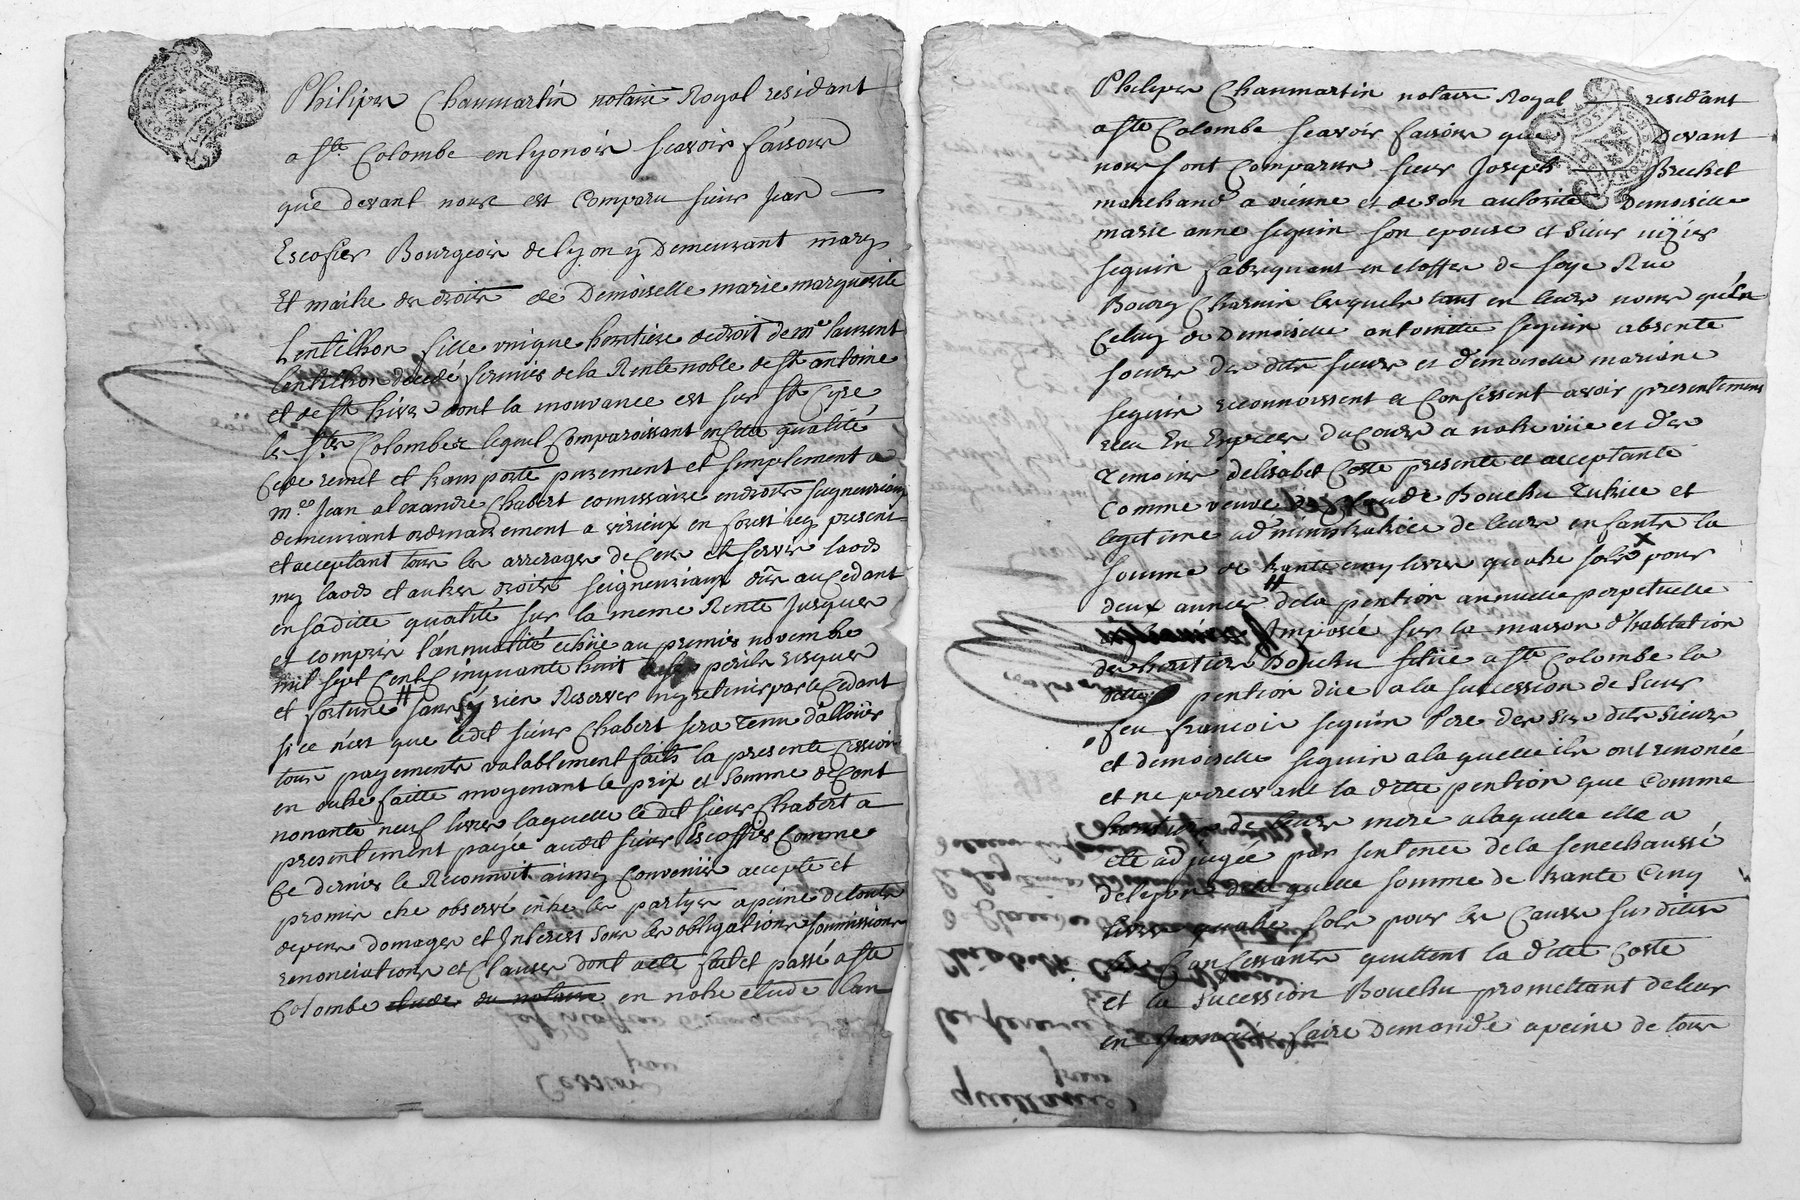 Philiper Chaumartin notaire Royal residant
a Ste Colombe en lyonois scavoir faisons
que devant nous est comparu sieur Jean
Escofier Bourgeois de lyon y demeurant mary
Et maitre des droits de Demoiselle marie marguerite
Lentilhon fille unique heritiere de droit de me laurent
Lentilhon décédé fermier de la Rente noble de st antoine
et de st hirs dont la mouvance est sur st Cire
les Stes Colombe lequel comparoissant en cette qualité
cede remet et transporte purement et simplement a
me Jean alexandre Chabert comissaire en droits seigneuriaux
demeurant ordinairement a virieux en forest icy present
et acceptant tous les arrerages de cens et servis laods
my laods et autres droits seigneuriaux dûs au cedant
en sa ditte qualité sur la meme Rente Jusques
et compris l'annualité échüe au premier novembre
mil sept cents cinquante huit perils risques
et fortune sans rien Reserver ny retenir par le cedant
si ce n'est que ledit sieur Chabert sera tenu d'allouer
tous payements valablement faits la presente cession
en outre faitte moyenant le prix et somme de cent
nonante neuf livres laquelle ledit sieur Chabert a
presentement payée audit sieur Escoffier comme
ce dernier le Reconnoit ainsy convenir accepte et
promis etre observé entre les partyes a peine de tous
depens domages et Interest sous les obligations soumissions
renonciations et clauses dont acte fait et passé a Ste
Colombe etude du notaire en notre etude l'an
Cession
pour
Philiper Chaumartin notaire Royal residant
a Ste Colombe scavoir faisons que Devant
nous sont comparus sieur Joseph Brechet
marchand a vienne et de son autorité Demoiselle
marie anne seguin son epouse et sieur nizier
seguin fabriquant en etoffes de soye Rue
Bourg Charnin lesquels tant en leurs noms qu'en
celuy de Demoiselle antoinette seguin absente
soeurs des dits sieurs et demoiselle mariane
seguin reconnoissent et confessent avoir presentement
reçu En Especes du cours a notre vüe et des
temoins d'elisabet Coste presente et acceptante
comme veuve Claude Bouchu tutrice et
legitime administratrice de leurs enfants la
somme de trante cinq livres quatre sols x pour
deux années de la pention annuelle perpetuelle
Imposée sur la maison d'habitation
des heritiers Bouchu sitüe a Ste Colombe la
ditte pention düe a la succession de sieur
feu francois seguin Pere des sus dits sieurs
et demoiselle seguin a laquelle ils ont renoncée
et ne percevant la ditte pention que comme
heritiers de leurs mere a laquelle elle a
eté adjugée par sentence de la senechaussé
de lyon de la quelle somme de trante cinq
livres quatre sols pour les causes sus dittes
les confessants quittent la ditte Coste
et la sucession Bouchu promettant de leur
en Jamais faire Demande a peine de tous
quittance
pour